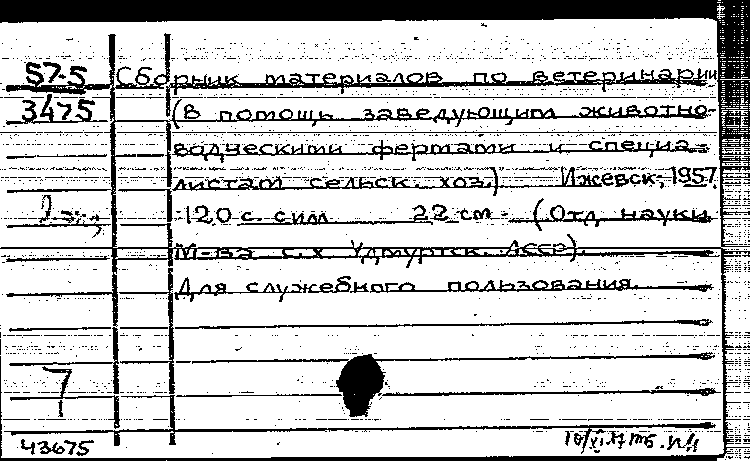 57-5 Сборник материалов по ветеринарии
3475 (В помощь заведующим животно-
водческими фермами и специа-
листам сельск. хоз.) Ижевск, 1957.
120 с. силл. 22 см - (Отд. науки
М-ва с.х Удмуртск. Асср).
Для служебного пользования.
7
43675